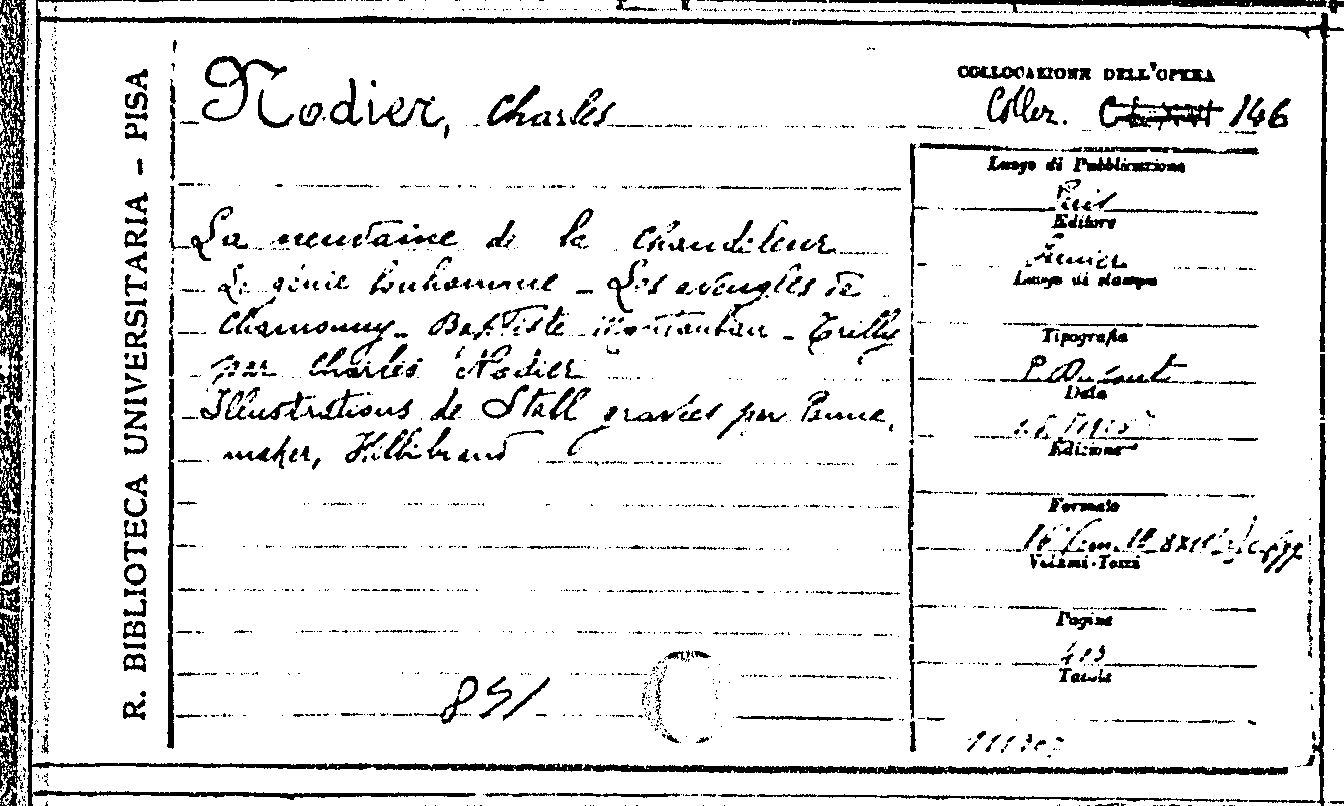 R. BIBLIOTECA UNIVERSITARIA - PISA
Nodier, Charles
COLLOCAZIONE DELL'OPERA
Collez. 146
La neuvaine de la chandeleur
Le génie bonhomme - Les aveugles de
Chamouny - Baptiste Montauban - Trilby
par Charles Nodier
Illustrations de Stall gravées par Panne-
maker, Hildibrand
851
Luogo di Pubblicazione
Paris
Editore
Luogo di stampa
Tipografia
P. Dupont
Data
Edizione
Formato
16°
Volumi-Tomi
Pagine
Tavole